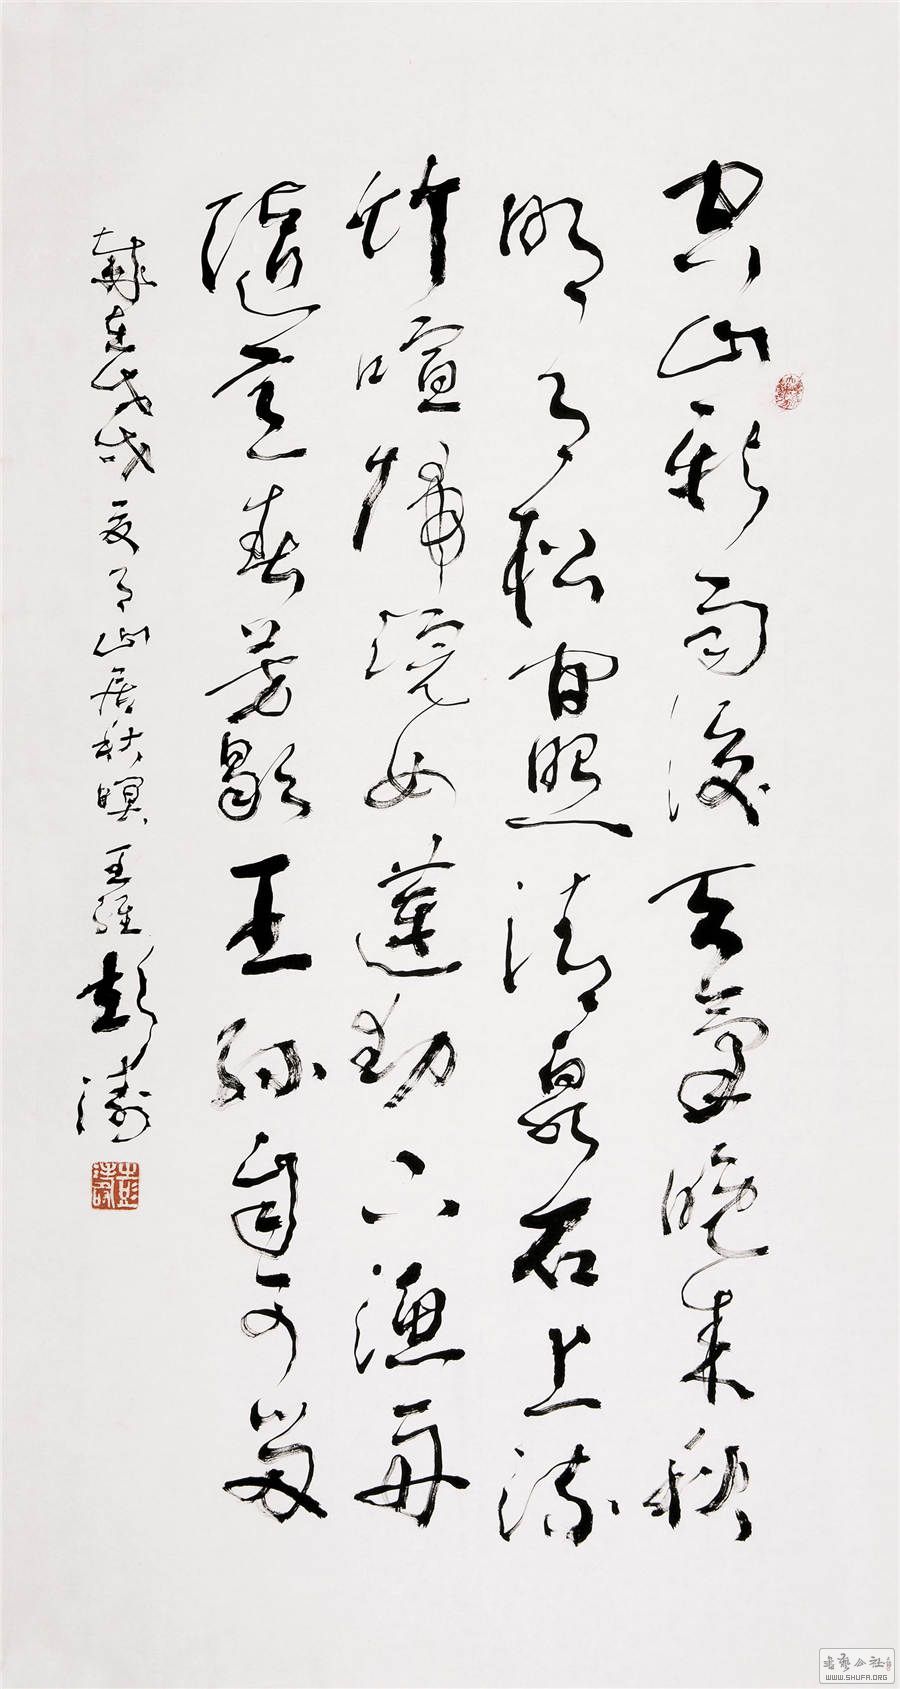 空山新雨後天氣晚来秋
明月松間照清泉石上流
竹喧歸浣女蓮動下漁舟
隨意春芳歇王孫自可留
歲在戊戌夏月山居秋暝王維彭濤
書藝公社
WWW.SHUFA.ORG